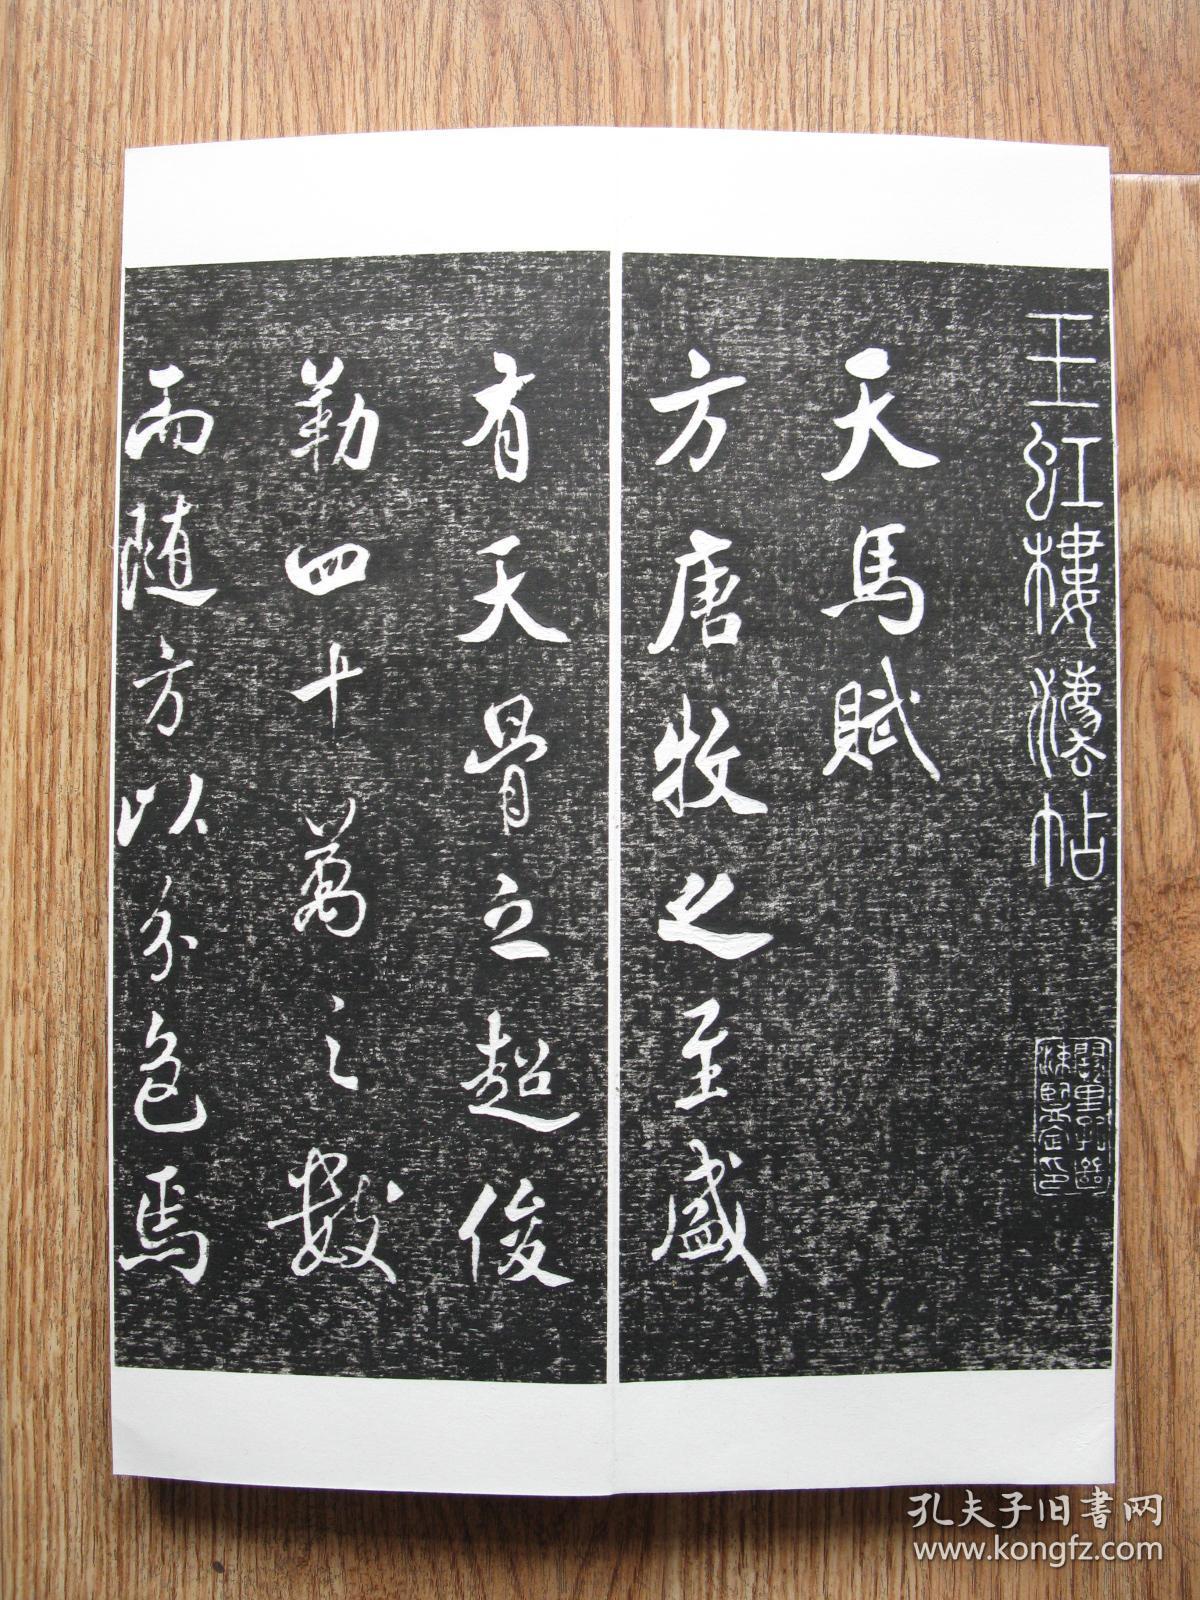 玉虹樓灋帖
闕里孔繼
涑鑒定印
天馬賦
方唐牧之至盛
有天骨之超俊
勒四十萬之數
而随方以分色焉
孔夫子旧書网
www.kongfz.com